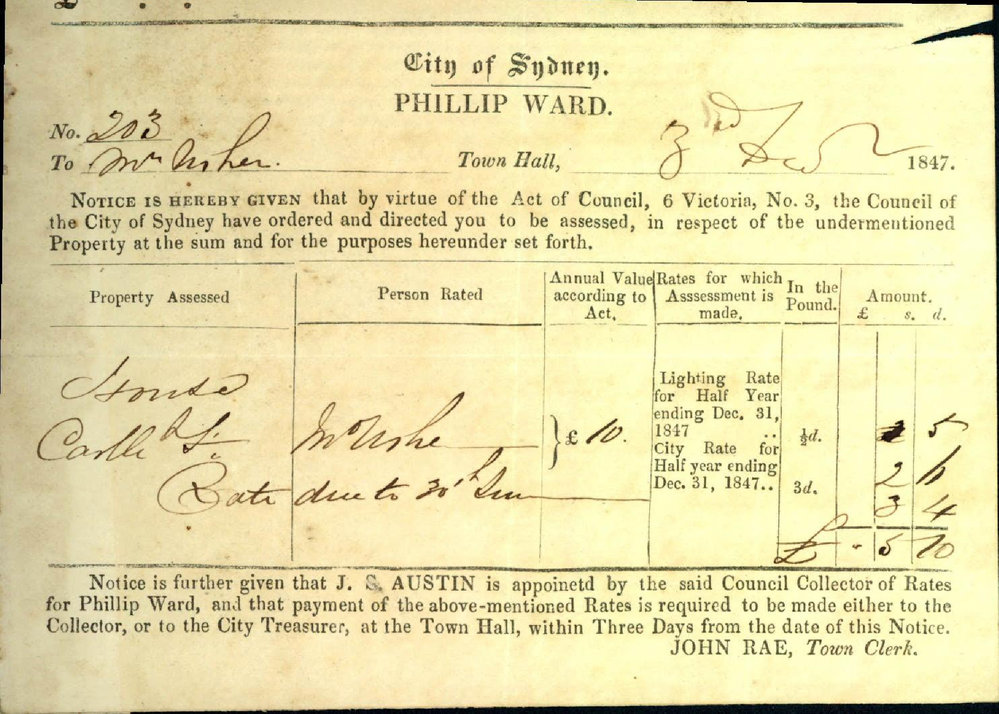 City of Sydney.
PHILLIP WARD.
No. 203
To Mr Usher. Town Hall, 3rd 1847.
NOTICE IS HEREBY GIVEN that by virtue of the Act of Council, 6 Victoria, No. 3, the Council of
the City of Sydney have ordered and directed you to be assessed, in respect of the undermentioned
Property at the sum and for the purposes hereunder set forth.
Property Assessed
Person Rated
Annual Value
according to
Act.
Rates for which
Asssessment is
made.
In the
Pound.
Amount.
£ s. d.
House
St.
Mr Ushe
£ 10.
Lighting Rate
for Half Year
ending Dec. 31,
1847 .. ½d. 5
City Rate for
Half year ending
Dec. 31, 1847.. 3d. 2 6
Rate due to 30th June 3 4
£ . 5 10
Notice is further given that J. S. AUSTIN is appoinetd by the said Council Collector of Rates
for Phillip Ward, and that payment of the above-mentioned Rates is required to be made either to the
Collector, or to the City Treasurer, at the Town Hall, within Three Days from the date of this Notice.
JOHN RAE, Town Clerk.